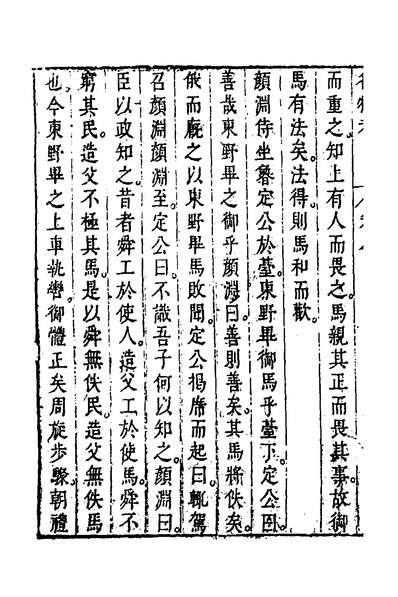 而重之知上有人而畏之。馬親其正而畏其事。故御
馬有法矣。法得則馬和而歡。
顏淵侍坐魯定公於臺。東野畢御馬乎臺下。定公曰
善哉東野畢之御乎顏淵曰。善則善矣。其馬將佚矣。
俄而廐之以東野畢馬敗聞。定公揭席而起曰。輒駕
召顏淵顏淵至。定公曰不識吾子何以知之。顏淵曰。
臣以政知之。昔者舜工於使人。造父工於使馬。舜不
窮其民。造父不極其馬。是以舜無佚民。造父無佚馬
也。今東野畢之上車執轡。御體正矣。周旋步驟。朝禮